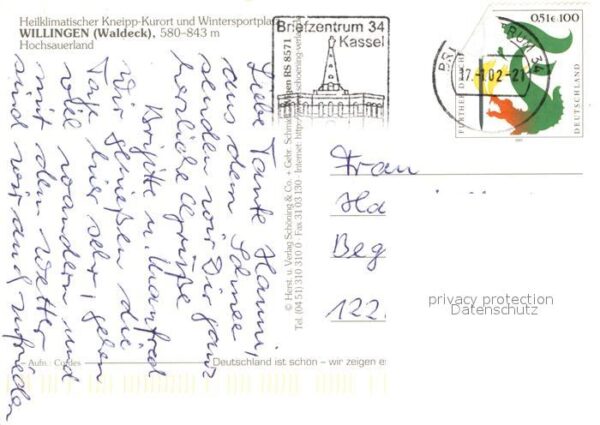 Heilklimatischer Kneipp-Kurort und Wintersportplatz
WILLINGEN (Waldeck), 580–843 m
Hochsauerland
Liebe Tante Hanni,
aus dem Schnee
senden wir Dir ganz
herzliche Grüße
Brigitte u. Manfred
Wir genießen die
Tage hier sehr, gehen
viel wandern und
mit dem Wetter
sind wir auch zufrieden
© Herst. u. Verlag Schöning & Co. + Gebr. Schmidt
Tel. (04 51) 310 310 0 · Fax 31 03 130 - Internet: http
RS 8571
Briefzentrum 34
Kassel
BRI RUM 34
17.-1.02-21
0,51€+100
FÜR
DEUTSCHLAND
Frau
Ha
Beg
122
privacy protection
Datenschutz
Aufn.: Cordes
Deutschland ist schön – wir zeigen es